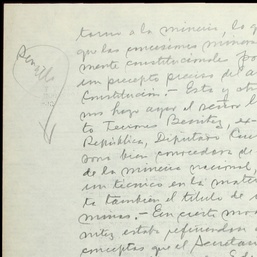 torno a la minería, lo q
que las concesiones minera
mente constitucionales po
un precepto preciso del a
Constitución.- Esta y otr
me hizo ayer el señor l
to Terrones Benítez, ex-
República, Diputado Con
sona bien conocedora de
de la minería nacional,
un técnico en la mater
ta también el título de
minas.- En cierto mo
nítez estaba refiriendo
conceptos que el Secretari